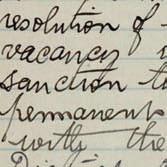 resolution of
vacancy
sanction to
permanent
with the